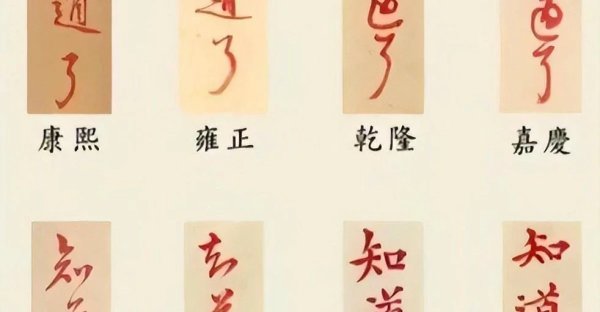 道了 道了 道了 道了
康熙 雍正 乾隆 嘉慶
知道 知道 知道 知道